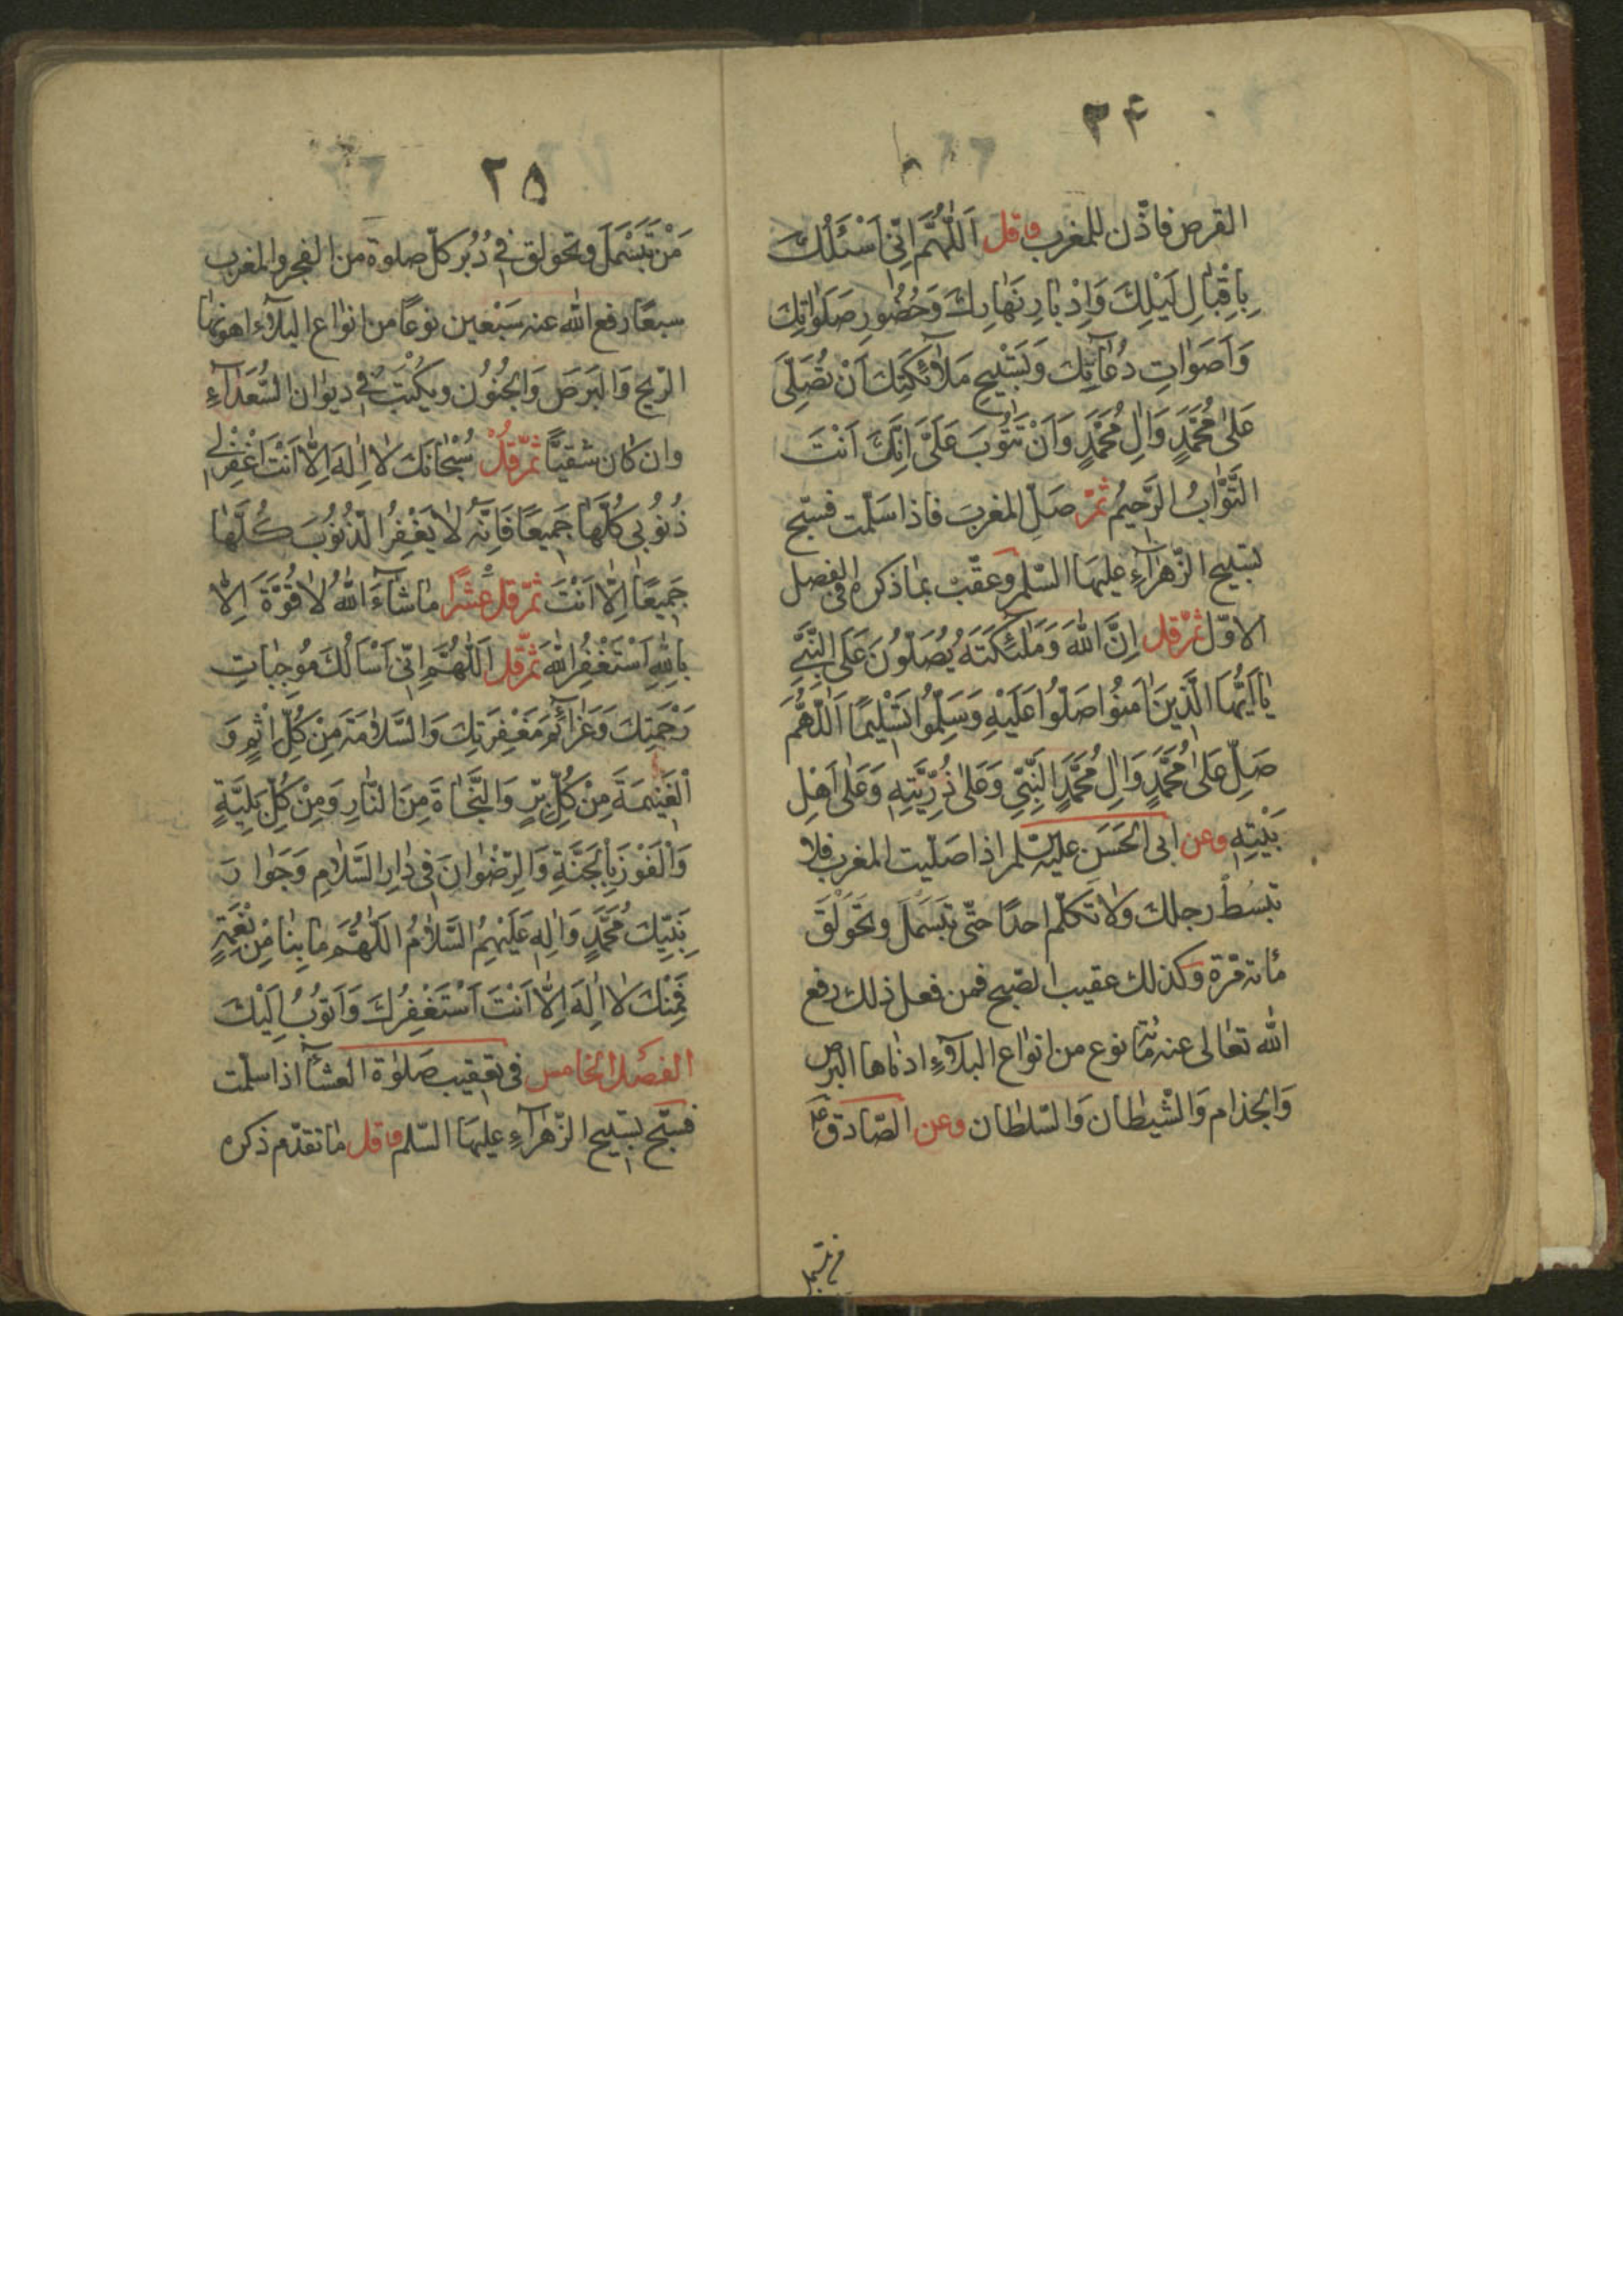 ۳۴
القرص فاذّن للمغرب وقل اَللّٰهُمَّ اِنّی اَسْئَلُكَ
بِاِقْبٰالِ لَيْلِكَ وَاِدْبٰارِ نَهٰارِكَ وَحُضُورِ صَلَوٰاتِكَ
وَاَصْوٰاتِ دُعٰآئِكَ وَتَسْبيحِ مَلٰآئِكَتِكَ اَنْ تُصَلِّیَ
عَلیٰ مُحَمَّدٍ وَاٰلِ مُحَمَّدٍ وَاَنْ تَتُوبَ عَلَیَّ اِنَّكَ اَنْتَ
التَّوّٰابُ الرَّحيمُ ثمّ صَلِّ المغربَ فاذا سَلّمت فسبّح
تسبيح الزّهرٰآءِ عليهَا السّلم وعقّبْ بمٰا ذكره فی الفصل
الاوّل ثمّ قل اِنَّ اللّٰهَ وَمَلٰئِكَتَهُ يُصَلّوُنَ عَلَی النَّبِیِّ
يٰا اَيُّهَا الَّذينَ اٰمَنُوا صَلّوُا عَلَيْهِ وَسَلِّموُا تَسْليمًا اَللّٰهُمَّ
صَلِّ عَلیٰ مُحَمَّدٍ وَاٰلِ مُحَمَّدٍ النَّبِیِّ وَعَلیٰ ذُرِّيَّتِهِ وَعَلیٰ اَهْلِ
بَيْتِهِ وعن ابی الحَسَن عليه السّلم اذا صلّيت المغرب فلا
تبسُط رجلك وَلا تَكلّم احدًا حتّی تبَسَملَ وتحَوْلَقَ
مأته مرّة وكذلك عقيب الصّبح فمن فعل ذلك رفع
اللّٰه تعٰالی عنه مٰأة نوع من انوٰاع البلآءِ ادنٰاها البرص
وَالجذام وَالشّيطٰان وَالسّلطٰان وعن الصّادق ع
من تبسمل
۲۵
مَنْ تَبَسْمَلَ وتحَولق فی دُبُر كلّ صلوة من الفجر والمغرب
سبعًا رفع اللّٰه عنه سَبْعين نوعًا من انوٰاع البلآء اهونهٰا
الرّيح وَالبَرَصَ وَالجُنوُن ويكُتَبُ فی ديوٰان السُّعَدٰآءِ
وان كٰان شقيًّا ثمّ قلْ سُبْحٰانَكَ لٰا اِلٰهَ اِلّٰا اَنْتَ اغْفِرْ لی
ذُنوُبی كُلَّهٰا جَميعًا فَاِنَّهُ لٰا يَغْفِرُ الذُّنوُبَ كُلَّهٰا
جَميعًا اِلّٰا اَنْتَ ثمّ قل عَشْرًا مٰا شٰآءَ اللّٰهُ لٰا قُوَّةَ اِلّٰا
بِاللّٰهِ اَسْتَغْفِرُ اللّٰهَ ثمّ قل اَللّٰهُمَّ اِنّی اَسْاَلُكَ موُجِبٰاتِ
رَحْمَتِكَ وَعَزٰآئِمَ مَغْفِرَتِكَ وَالسَّلٰامَةَ مِنْ كُلِّ اِثْمٍ وَ
الْغَنيمَةَ مِنْ كُلِّ بِرٍّ وَالنَّجٰاةَ مِنَ النّٰارِ وَمِنْ كُلِّ بَلِيَّةٍ
وَالْفَوْزَ بِالْجَنَّةِ وَالرِّضْوٰانَ فی دٰارِ السَّلٰامِ وَجَوٰارَ
نَبِيِّكَ مُحَمَّدٍ وَاٰلِهِ عَلَيْهِمُ السَّلٰامُ اَللّٰهُمَّ مٰا بِنٰا مِنْ نِعْمَةٍ
فَمِنْكَ لٰا اِلٰهَ اِلّٰا اَنْتَ اَسْتَغْفِرُكَ وَاَتوُبُ اِلَيْكَ
الفصل الخامس فی تعقيب صَلوٰة العشآء اذا سلّمت
فسبّح تسبيح الزّهرٰآءِ عليهَا السّلم وقل مٰا تقدّم ذكره